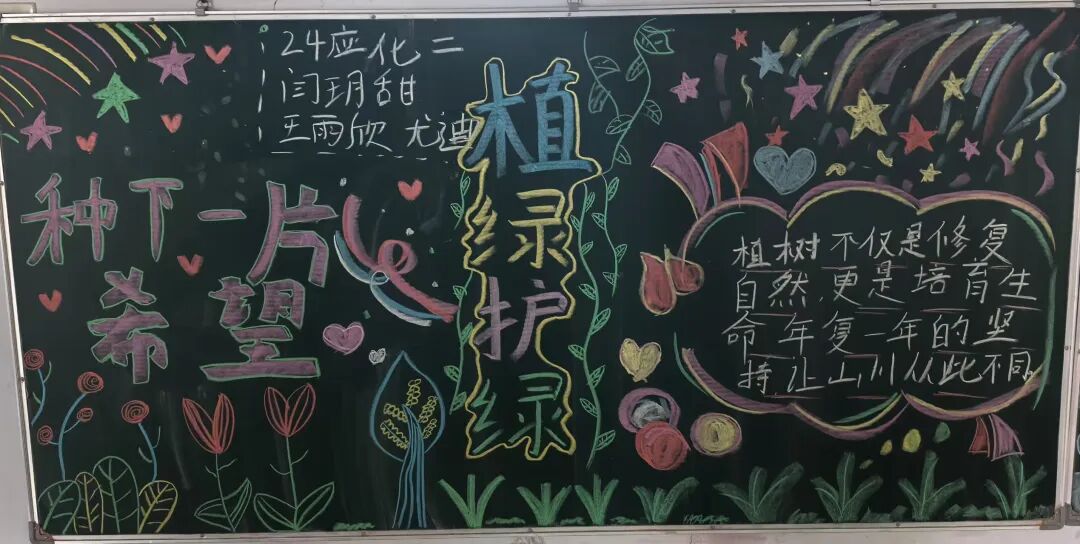 24应化二
闫玥甜
王雨欣 尤迪
种下一片
希望
植
绿
护
绿
植树不仅是修复
自然,更是培育生
命年复一年的坚
持让山川从此不同